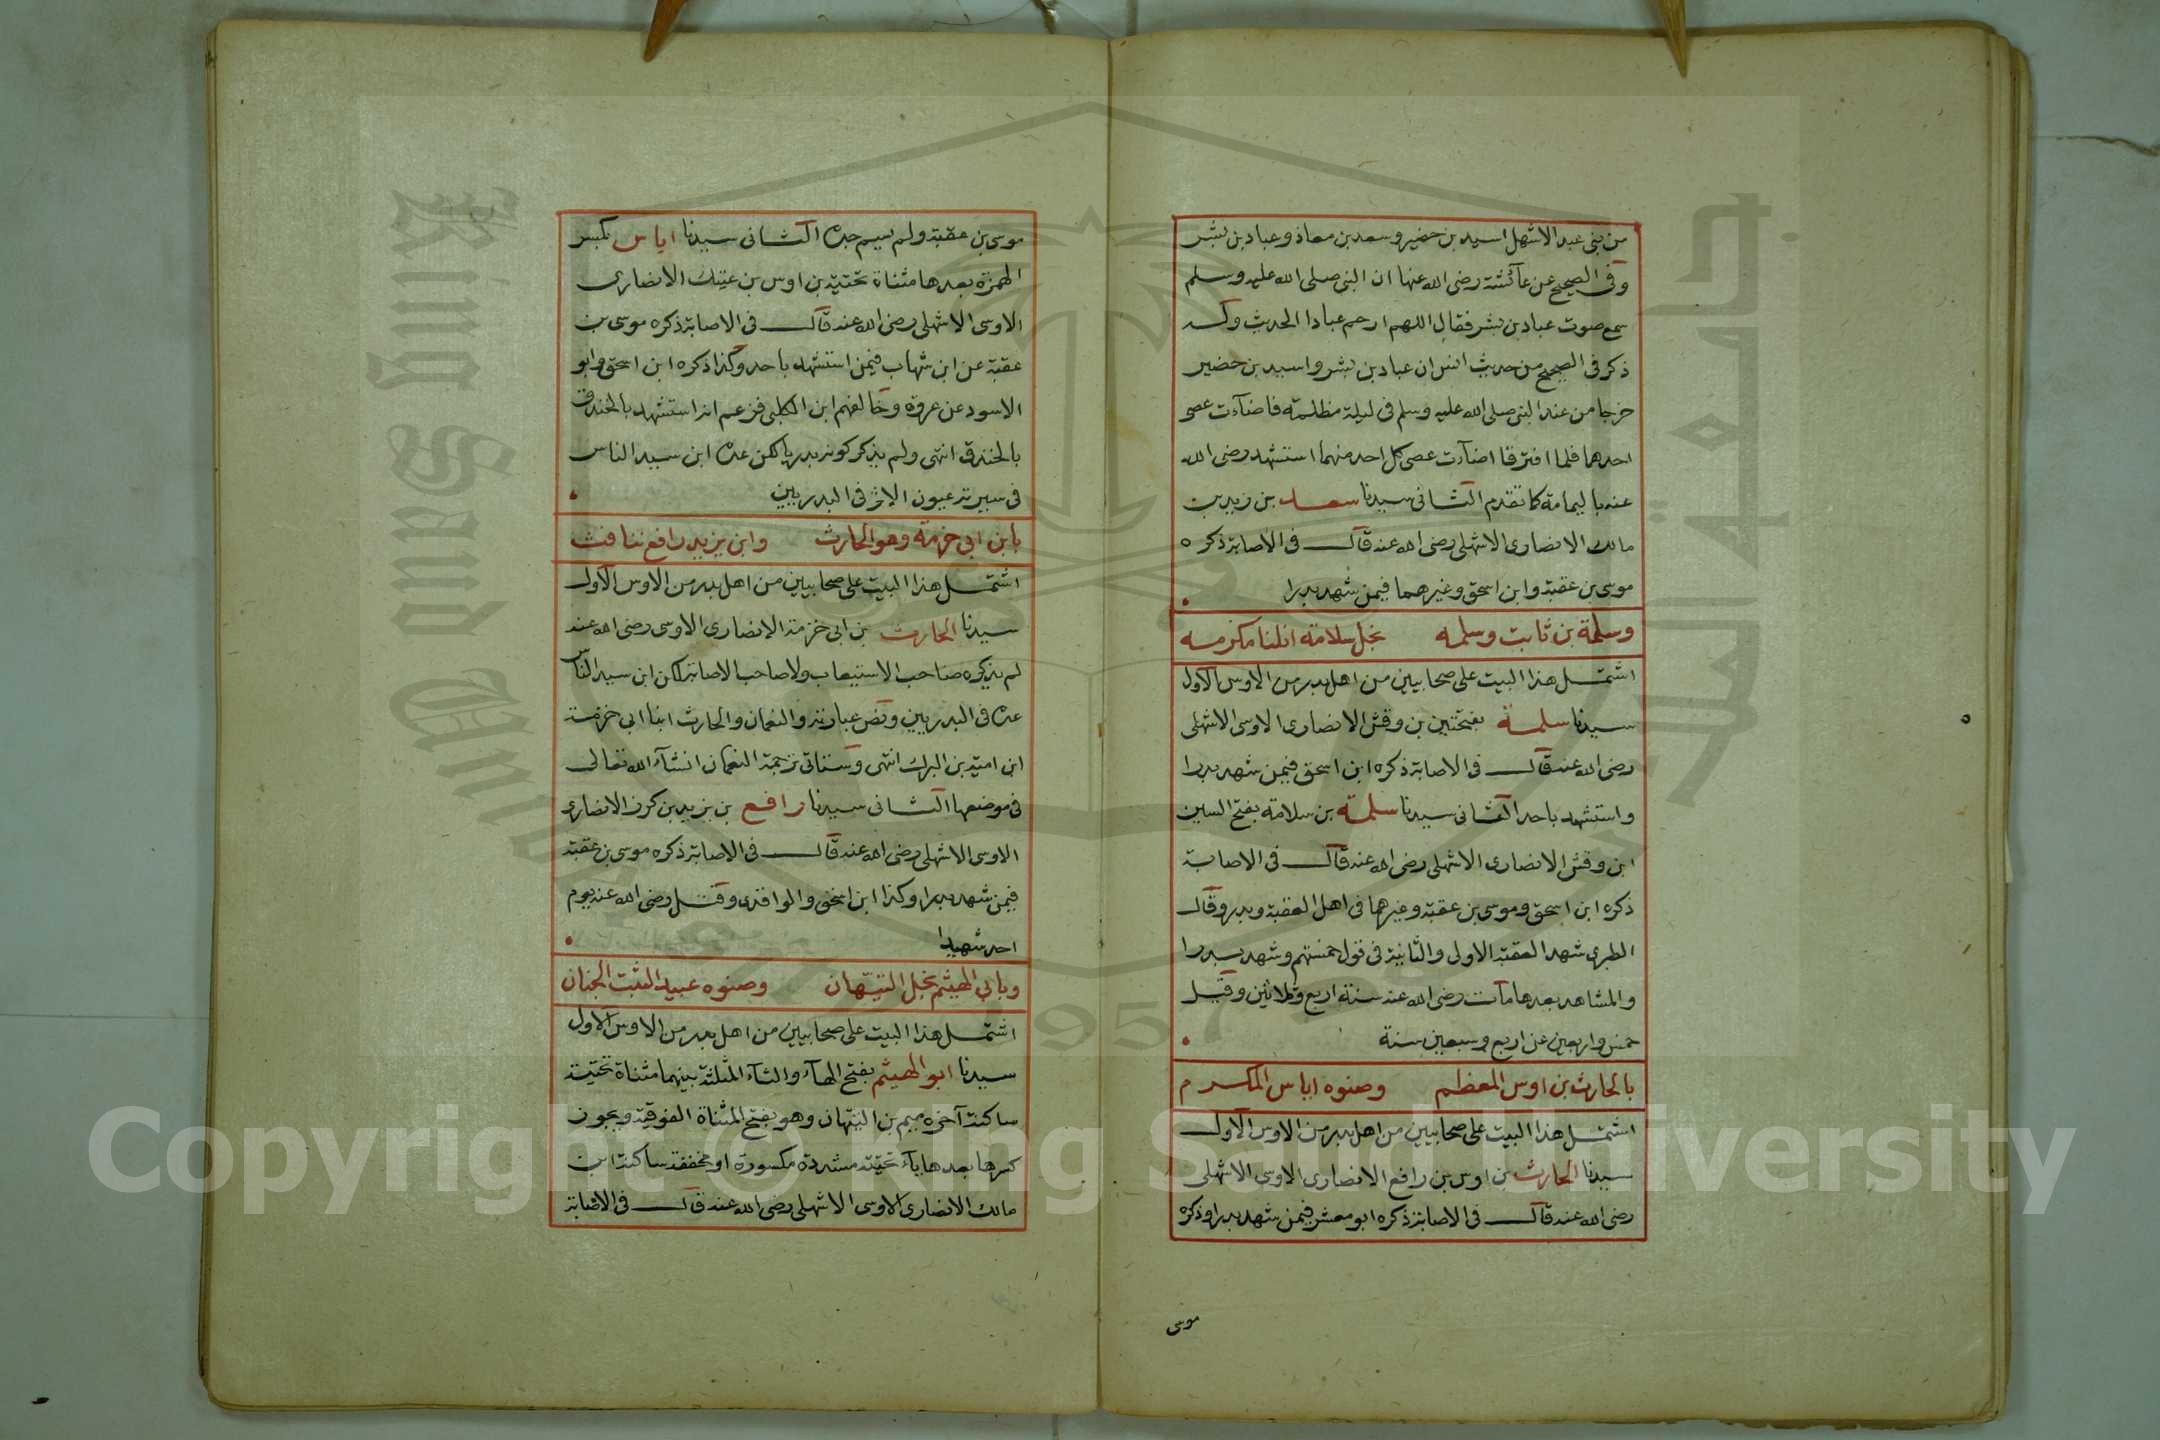 من بنى عبد الاشهل اسيد بن حضير وسعد بن معاذ وعباد بن بشر
وفى الصحيح عن عآئشة رضى الله عنها ان النبى صلى الله عليه وسلم
سمع صوت عباد بن بشر فقال اللهم ارحم عبادا الحديث وله
ذكر فى الصحيح من حديث انس ان عباد بن بشر واسيد بن حضير
خرجا من عند النبى صلى الله عليه وسلم فى ليلة مظلمة فاضآءت عصى
احدهما فلما افترقا اضآءت عصى كل احد منهما استشهد رضى الله
عنه باليمامة كما تقدم الثانى سيدنا سعد بن زيد بن
مالك الانصارى الاشهلى رضى الله عنه قال فى الاصابة ذكره
موسى بن عقبة وابن اسحق وغيرهما فيمن شهد بدرا
وسلمة بن ثابت وسلمه نجل سلامة انلنا مكرمه
اشتمل هذا البيت على صحابيين من اهل بدر من الاوس الاول
سيدنا سلمة بفتحتين بن وقش الانصارى الاوسى الاشهلى
رضى الله عنه قال فى الاصابة ذكره ابن اسحق فيمن شهد بدرا
واستشهد باحد الثانى سيدنا سلمة بن سلامة بفتح السين
ابن وقش الانصارى الاشهلى رضى الله عنه قال فى الاصابة
ذكره ابن اسحق وموسى بن عقبة وغيرهما فى اهل العقبة وبدر وقال
الطبرى شهد العقبة الاولى والثانية فى قول جمعتهم وشهد بدرا
والمشاهد بعدها مات رضى الله عنه سنة اربع وثلاثين وقيل
خمس واربعين عن اربع وسبعين سنة
بالحارث بن اوس المعظم وصنوه اياس المكرم
اشتمل هذا البيت على صحابيين من اهل بدر من الاوس الاول
سيدنا الحارث بن اوس بن رافع الانصارى الاوسى الاشهلى
رضى الله عنه قال فى الاصابة ذكره ابو معشر فيمن شهد بدرا وذكره
موسى
موسى بن عقبة ولم يسم جده الثانى سيدنا اياس بكسر
الهمزة بعدها مثناة تحتية بن اوس بن عتيك الانصارى
الاوسى الاشهلى رضى الله عنه قال فى الاصابة ذكره موسى بن
عقبة عن ابن شهاب فيمن استشهد باحد وكذا ذكره ابن اسحق وابو
الاسود عن عروة وخالفهم ابن الكلبى فزعم انه استشهد بالخندق
بالخندق انتهى ولم يذكر كونه بدريا لكن عده ابن سيد الناس
فى سيرته عيون الاثر فى البدريين
بابن ابى خزمة وهو الحارث وابن يزيد رافع ننافث
اشتمل هذا البيت على صحابيين من اهل بدر من الاوس الاول
سيدنا الحارث بن ابى خزمة الانصارى الاوسى رضى الله عنه
لم يذكره صاحب الاستيعاب ولا صاحب الاصابة لكن ابن سيد الناس
عده فى البدريين ونص عبارته والنعمان والحارث ابنا ابى خزمة
ابن امية بن البرك انتهى وستاتى ترجمة النعمان انشآء الله تعالى
فى موضعها الثانى سيدنا رافع بن يزيد بن كرز الانصارى
الاوسى الاشهلى رضى الله عنه قال فى الاصابة ذكره موسى بن عقبة
فيمن شهد بدرا وكذا ابن اسحق والواقدى وقتل رضى الله عنه يوم
احد شهيدا
وبابى الهيثم نجل التيهان وصنوه عبيد الثبت الجنان
اشتمل هذا البيت على صحابيين من اهل بدر من الاوس الاول
سيدنا ابو الهيثم بفتح الهآء والثآء المثلثة بينهما مثناة تحتية
ساكنة آخره ميم بن التيهان وهو بفتح المثناة الفوقية ويجوز
كسرها بعدها يآء تحتية مشددة مكسورة او مخففة ساكنة ابن
مالك الانصارى الاوسى الاشهلى رضى الله عنه قال فى الاصابة
King Saud University
1957
Copyright © King Saud University